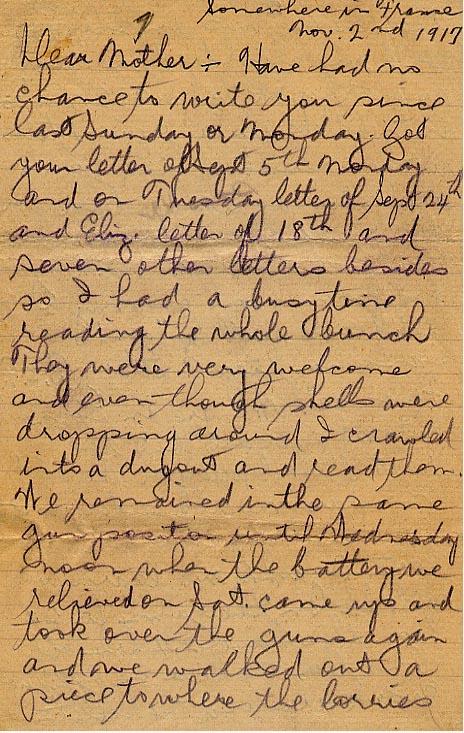 Somewhere in France
Nov. 2nd 1917
Dear Mother ÷ Have had no
chance to write you since
last Sunday or Monday. Got
your letter of Sept 5th Monday
and on Tuesday letter of Sept 24th
and Eliz. letter of 18th and
seven other letters besides
so I had a busy time
reading the whole bunch
They were very welcome
and even though shells were
dropping around I crawled
into a dugout and read them.
We remained in the same
gun positon until Wednesday
noon when the battery we
relieved on Sat. came up and
took over the guns again
and we walked out a
piece to where the lorries